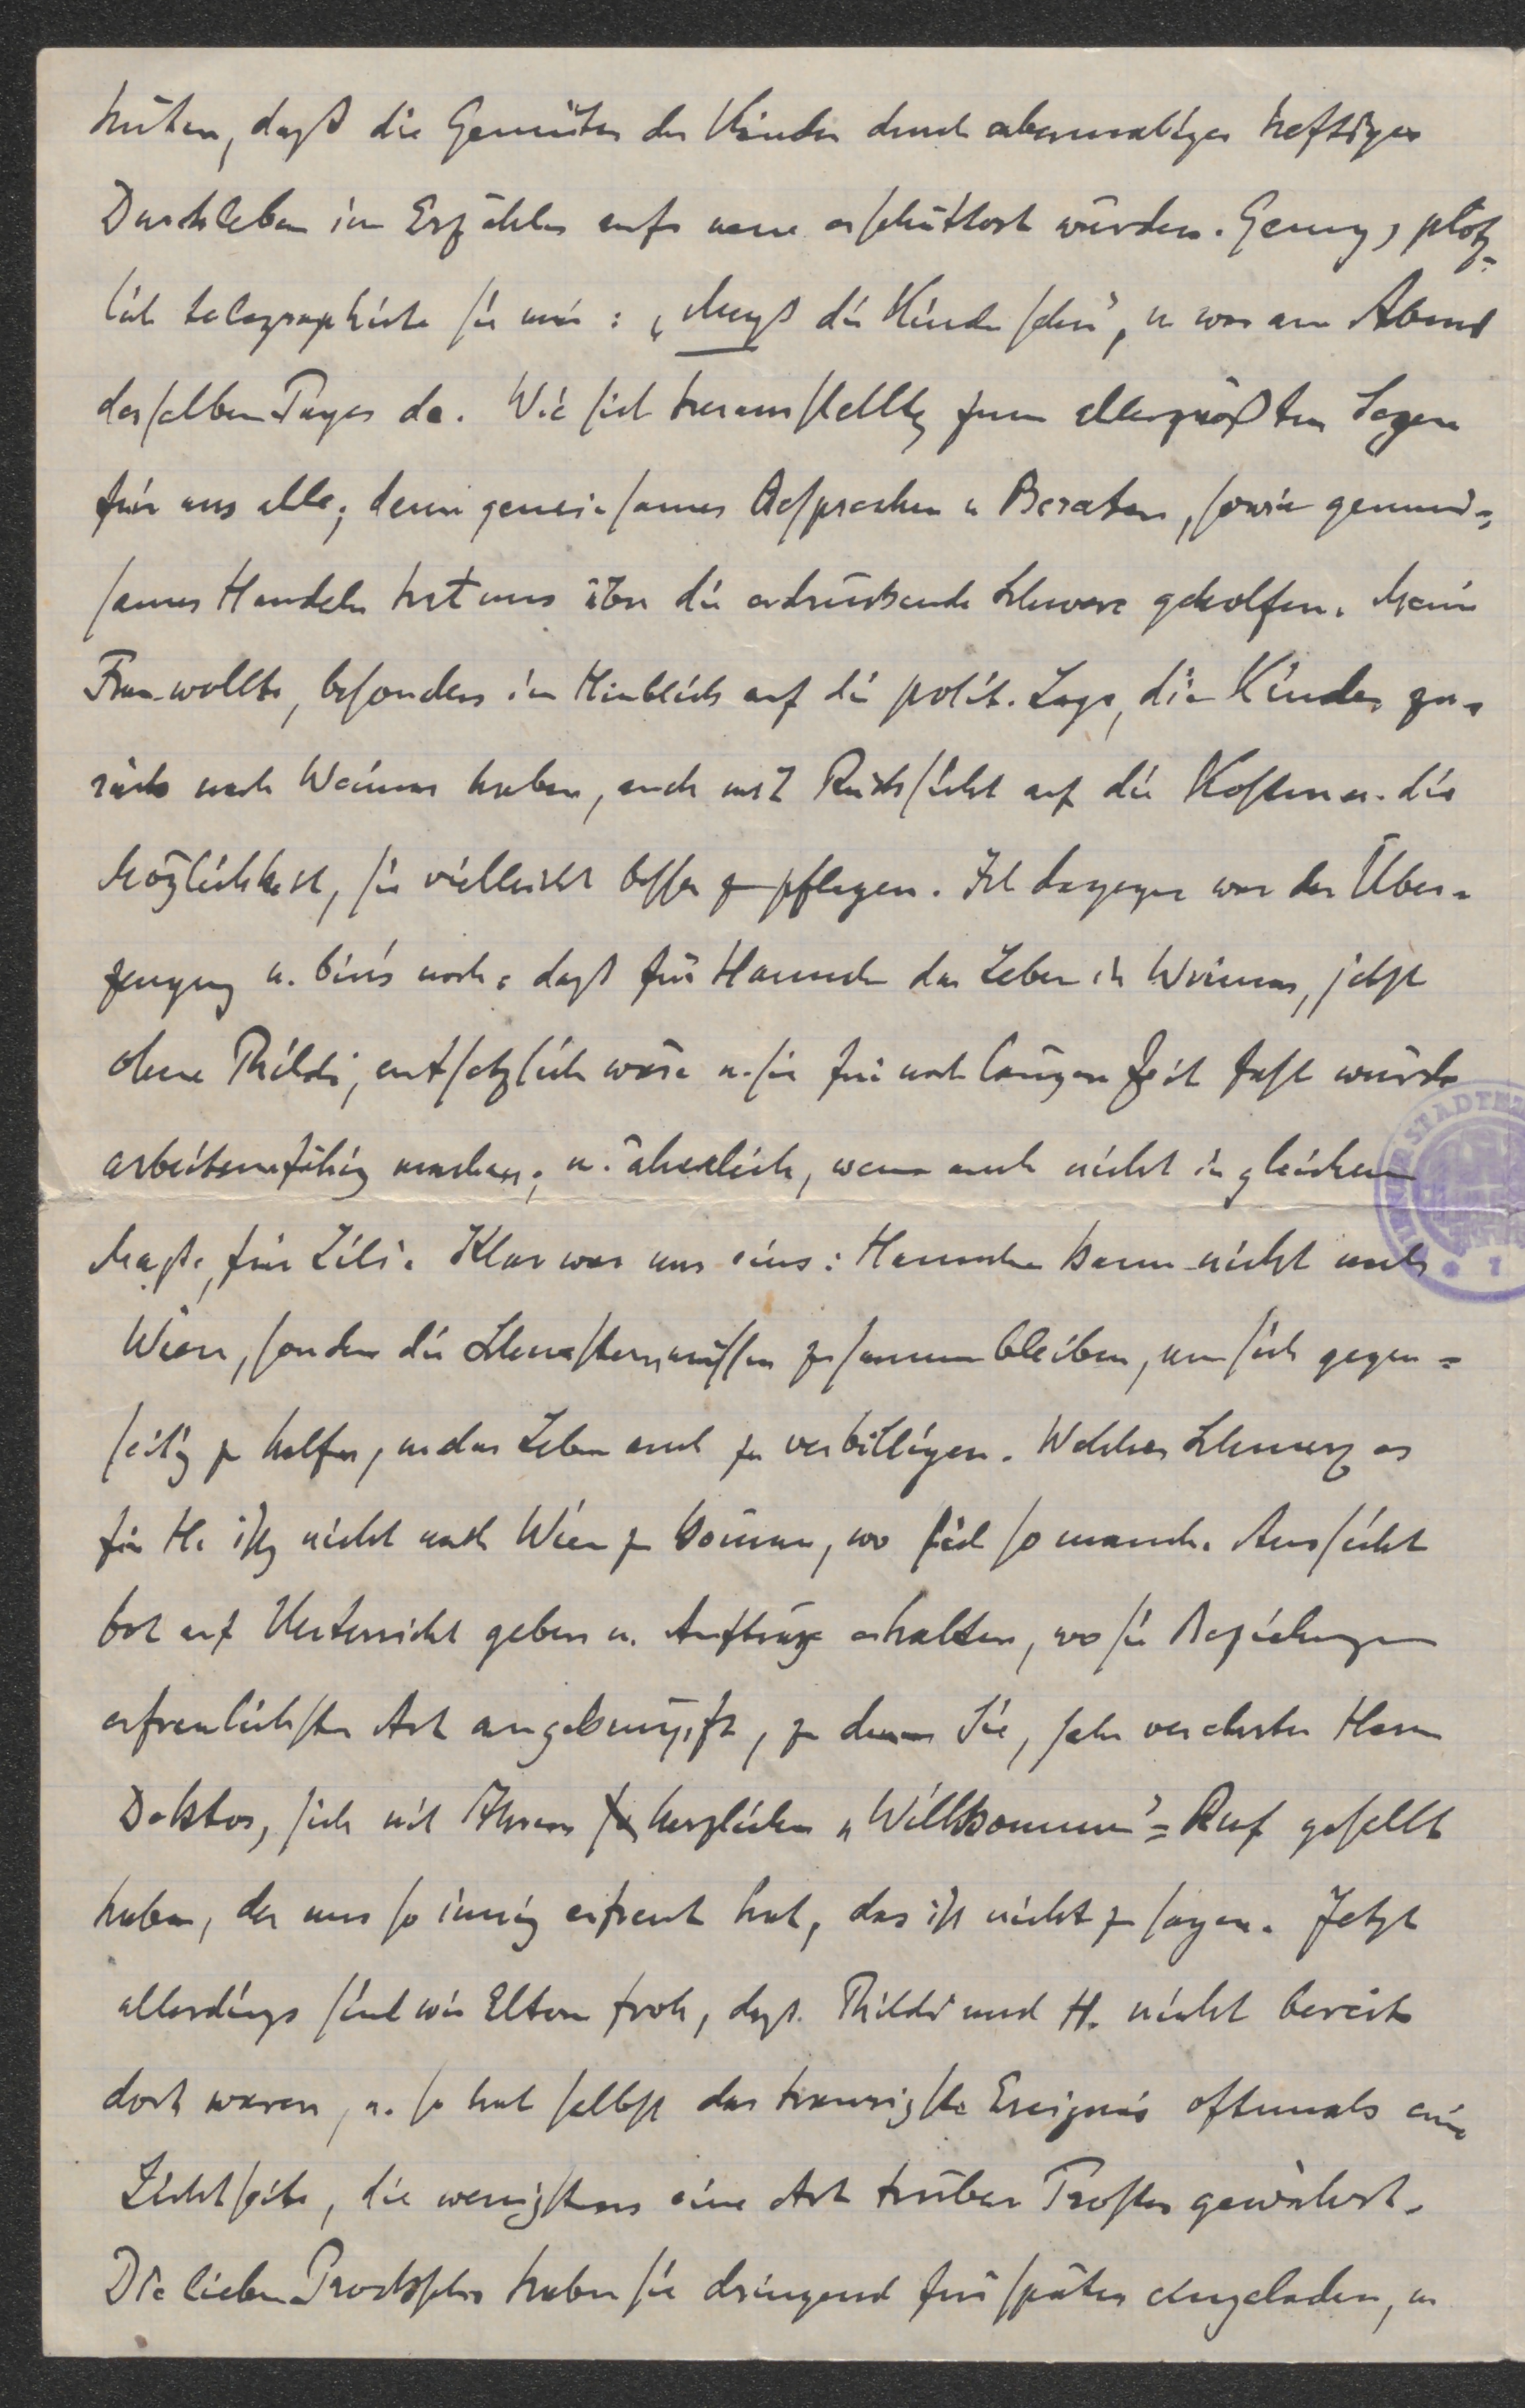 hüten, daß die Gemüter der Kinder durch abermaliges heftiges
Durchleben im Erzählen aufs neue erschüttert würden. Genug, plötz-
lich telegraphierte sie mir: „Muß die Kinder sehn", u war am Abend
desselben Tages da. Wie sich herausstellte, zum allergrößten Segen
für uns alle; denn gemeinsames Besprechen u Beraten, sowie gemein-
sames Handeln hat uns über die erdrückende Schwere geholfen. Meine
Frau wollte, besonders im Hinblick auf die polit. Lage, die Kinder zu-
rück nach Weimar haben, auch mit Rücksicht auf die Kosten u. die
Möglichkeit, sie vielleicht besser zu pflegen. Ich dagegen war der Über-
zeugung u. bin's noch: daß für Hannch das Leben in Weimar, jetzt
ohne Thildi, entsetzlich wäre u. sie für noch längere Zeit fast würde
arbeitsunfähig machen; u. ähnlich, wenn auch nicht in gleichem
Maße, für Lili. Klar war uns eins: Hannchen kann nicht nach
Wien, sondern die Schwestern müssen zusammen bleiben, um sich gegen-
seitig zu helfen, u das Leben auch zu verbilligen. Welcher Schmerz es
für H. ist, nicht nach Wien zu können, wo sich so manche Aussicht
bot auf Unterricht geben u. Aufträge erhalten, wo sie Beziehungen
erfreulichster Art angeknüpft, zu denen Sie, sehr verehrter Herr
Doktor, sich mit Ihrem herzlichen „Willkommen"-Ruf gesellt
haben, der uns so innig erfreut hat, das ist nicht zu sagen. Jetzt
allerdings sind wir Eltern froh, daß Thildi und H. nicht bereits
dort waren, u. so hat selbst das traurigste Ereignis oftmals eine
Lichtseite, die wenigstens eine Art trüben Trostes gewährt.
Die lieben haben sie dringend für später eingeladen, u